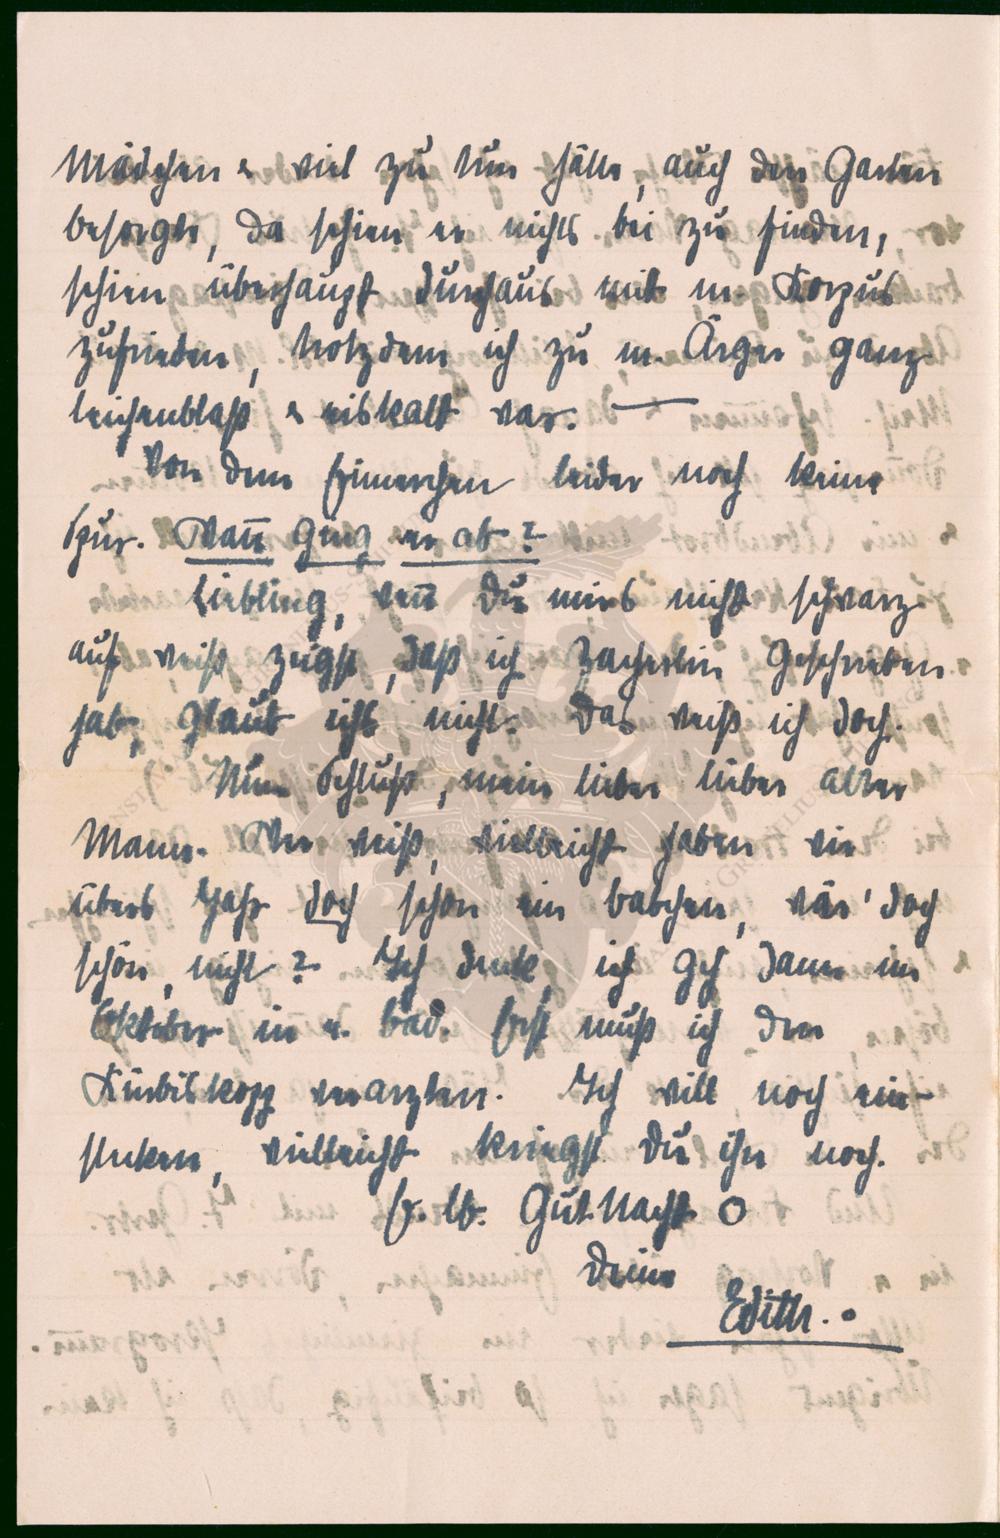 Mädchen & viel zu tun hätte, auch den Garten
besorgte, da schien er nichts bei zu finden,
schien überhaupt durchaus mit m. Korpus
zufrieden, trotzdem ich zu m. Ärger ganz
leichenblaß & eiskalt war. —
Von dem Eimerchen leider noch keine
Spur. Wañ ging er ab?
Liebling, weñ Du mirs nicht schwarz
auf weiß zeigst, daß ich Zacherlin geschrieben
hab, glaub ichs nicht. Das weiß ich doch.
Nun Schluß, mein lieber lieber alter
Mann. Wer weiß, vielleicht haben wir
übers Jahr doch schon ein babchen, wär' doch
schön, nicht? Ich denke, ich geh dann im
Oktober in e. bad. Erst muß ich den
Kürbiskopp verarzten. Ich will noch ein-
stecken, vielleicht kriegst Du ihn noch.
Gut Nacht O
Deine
Edith.